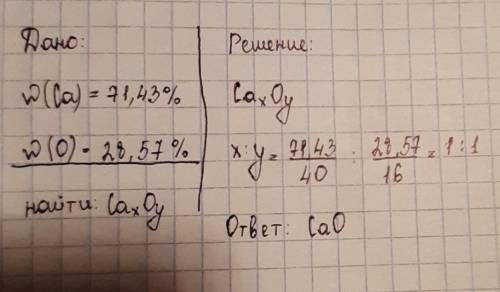 Дано:
W(Ca) = 71,43%
W(O) = 28,57%
найти: CaxOy
Решение:
CaxOy
x:y = 71,43/40 : 28,57/16 = 1:1
Ответ: CaO